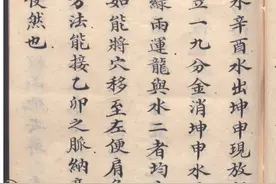 水辛酉水出坤申現放
立一九分金消坤申水
緣雨運龍與水二者均
如能將穴移至左便肩
方法能接乙卯之脈納
後然也